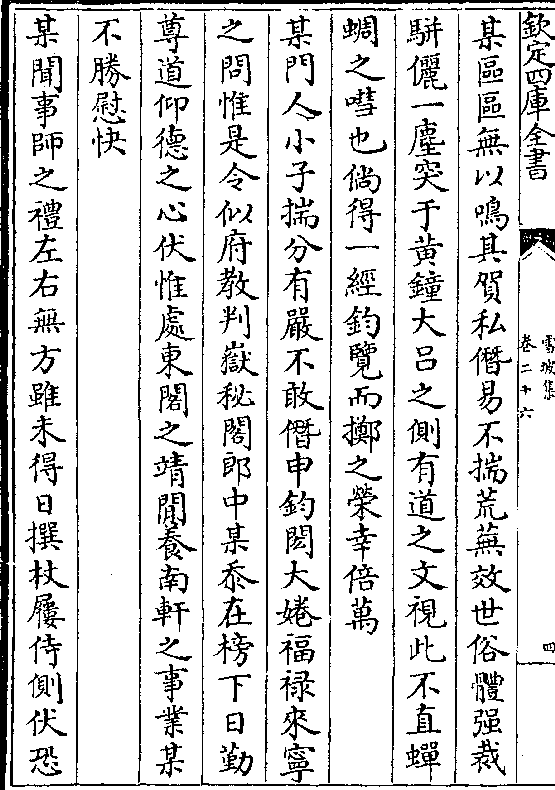 欽定四庫全書
雪坡集
卷二十六
四
某區區無以鳴其賀私僭易不揣荒蕪效世俗體强裁
駢儷一塵突于黃鐘大吕之側有道之文視此不直蟬
蜩之嘒也倘得一經鈞覽而擲之榮幸倍萬
某門人小子揣分有嚴不敢僭申鈞閎大婘福禄來寧
之問惟是令似府教判嶽秘閣郎中某忝在榜下日勤
尊道仰德之心伏惟處東閣之靖閒養南軒之事業某
不勝慰快
某聞事師之禮左右無方雖未得日撰杖屨侍側伏恐